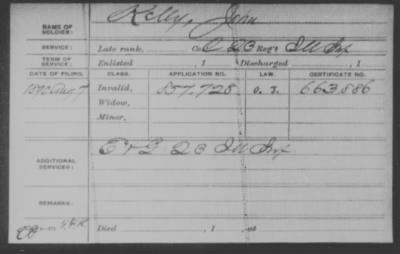 NAME OF SOLDIER: Kelly, John
SERVICE: Late rank, Co. C 23 Reg't Ill Inf
TERM OF SERVICE: Enlisted , 1 Discharged , 1
DATE OF FILING. CLASS. APPLICATION NO. LAW. CERTIFICATE NO.
1890 Aug 7 Invalid, 857.728 663.886
Widow,
Minor,
ADDITIONAL SERVICES: C & G 23 Ill Inf
REMARKS:
Died , 1 , at